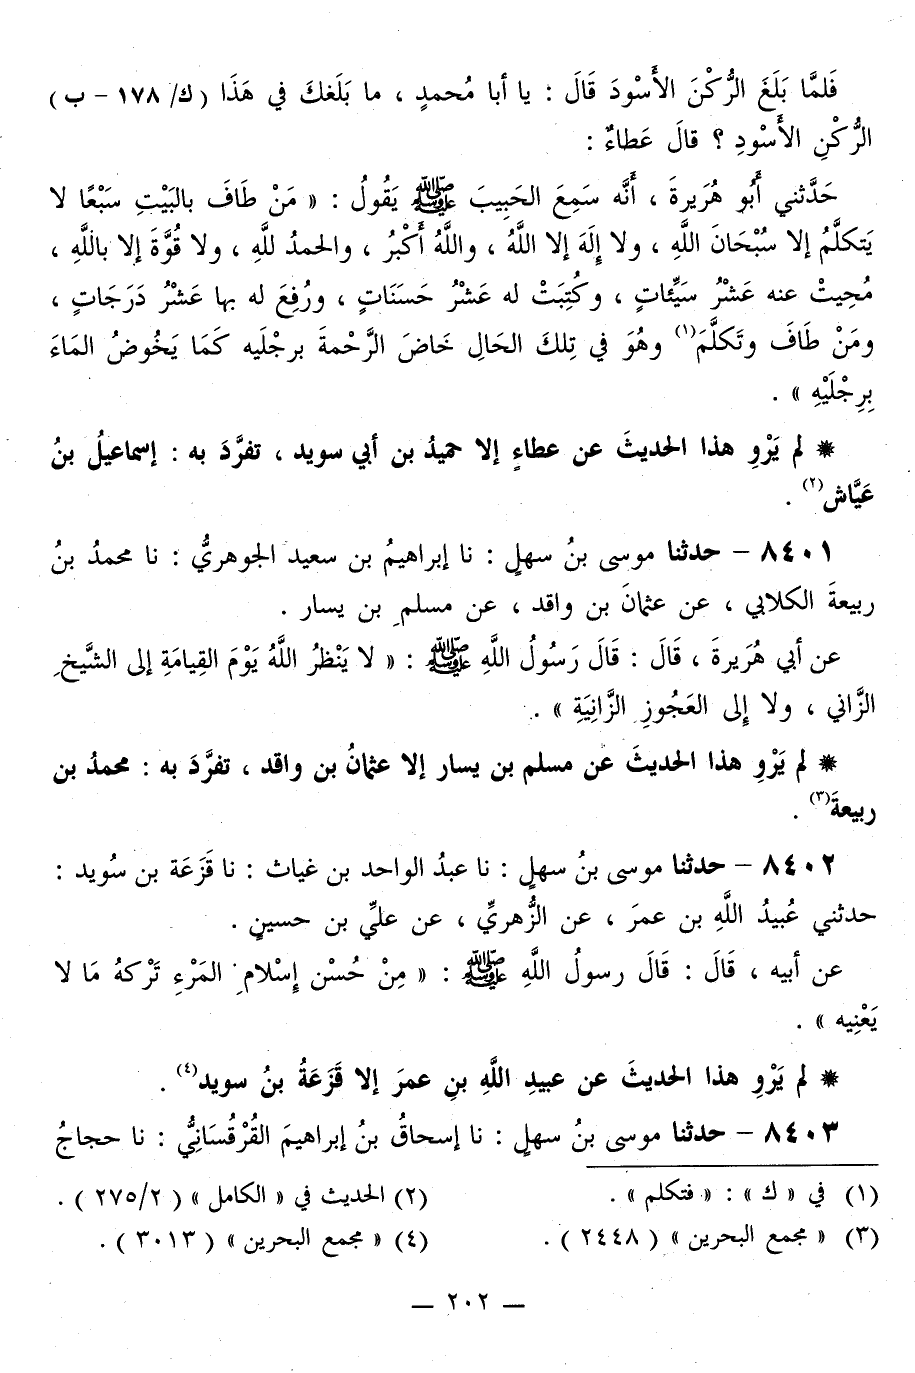 فَلمَّا بَلَغَ الرُّكْنَ الأَسْودَ قَالَ : يا أبا مُحمدٍ ، ما بَلَغكَ في هَذَا ( ك/ ١٧٨ - ب )
الرُّكْنِ الأَسْودِ ؟ قالَ عَطاءٌ :
حَدَّثني أَبُو هُرَيرةَ ، أَنَّه سَمِعَ الحَبِيبَ ﷺ يَقُولُ : « مَنْ طَافَ بالبَيْتِ سَبْعًا لا
يَتكلَّمُ إلا سُبْحَانَ اللَّهِ ، ولا إِلَهَ إلا اللَّهُ ، واللَّهُ أَكْبَرُ ، والحمدُ للَّهِ ، ولا قُوَّةَ إلا باللَّهِ ،
مُحِيتْ عنه عَشْرُ سَيِّئاتٍ ، وكُتِبَتْ له عَشْرُ حَسَنَاتٍ ، ورُفِعَ له بها عَشْرُ دَرَجَاتٍ ،
ومَنْ طَافَ وتَكلَّمَ(١) وهُوَ في تِلكَ الحَالِ خَاضَ الرَّحْمةَ برجْلَيه كَمَا يَخُوضُ المَاءَ
بِرِجْلَيْهِ » .
* لم يَرْوِ هذا الحديثَ عن عطاءٍ إلا حميدُ بن أبي سويد ، تفرَّدَ به : إسماعيلُ بنُ
عَيَّاش(٢) .
٨٤٠١ - حدثنا موسى بنُ سهلٍ : نا إبراهيمُ بن سعيد الجوهريُّ : نا محمدُ بنُ
ربيعةَ الكلابي ، عن عثمانَ بن واقد ، عن مسلمِ بن يسار .
عن أبي هُرَيرةَ ، قَالَ : قَالَ رَسُولُ اللَّهِ ﷺ : « لا يَنْظرُ اللَّهُ يَوْمَ القِيامَةِ إلى الشَّيخِ
الزَّاني ، ولا إِلى العَجُوزِ الزَّانِيَةِ » .
* لم يَرْوِ هذا الحديثَ عن مسلم بن يسار إلا عثمانُ بن واقد ، تفرَّدَ به : محمدُ بن
ربيعةَ(٣) .
٨٤٠٢ - حدثنا موسى بنُ سهلٍ : نا عبدُ الواحد بن غياث : نا قَزَعَة بن سُويد :
حدثني عُبيدُ اللَّهِ بن عمرَ ، عن الزُّهريِّ ، عن عليِّ بن حسينٍ .
عن أبيه ، قَالَ : قَالَ رسولُ اللَّهِ ﷺ : « مِنْ حُسْنِ إِسْلامِ المَرْءِ تَرْكهُ مَا لا
يَعْنِيه » .
* لم يَرْوِ هذا الحديثَ عن عبيدِ اللَّهِ بنِ عمرَ إلا قَزَعَةُ بنُ سويد(٤) .
٨٤٠٣ - حدثنا موسى بنُ سهلٍ : نا إسحاقُ بنُ إبراهيمَ القُرْقُسَانِيُّ : نا حجاجُ
(١) في « ك » : « فتكلم » .
(٢) الحديث في « الكامل » ( ٢٧٥/٢ ) .
(٣) « مجمع البحرين » ( ٢٤٤٨ ) .
(٤) « مجمع البحرين » ( ٣٠١٣ ) .
— ٢٠٢ —